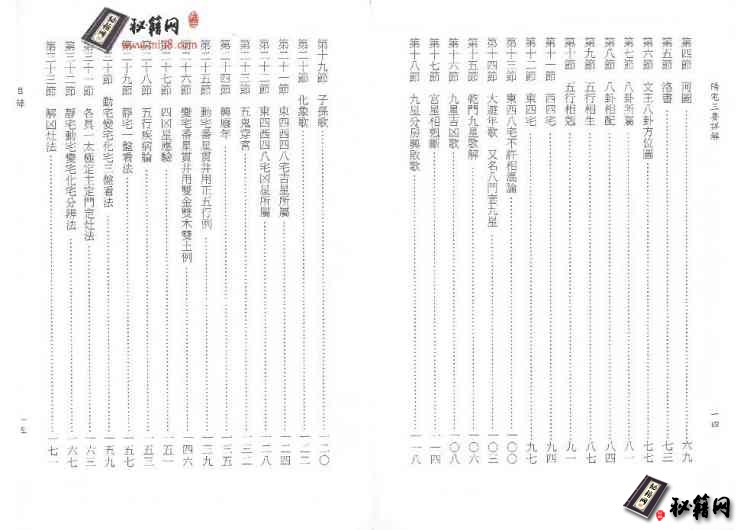 陽宅三要詳解
一四
第四節　河圖……六九
第五節　洛書……七三
第六節　文王八卦方位圖……七七
第七節　八卦所屬……八一
第八節　八卦相配……八四
第九節　五行相生……八七
第十節　五行相剋……九一
第十一節　西四宅……九五
第十二節　東四宅……九七
第十三節　東西八宅不許相混論……一〇〇
第十四節　大遊年歌　又名八門套九星……一〇四
第十五節　乾門九星歌解……一〇六
第十六節　九星吉凶歌……一〇八
第十七節　宮星相剋斷……一一四
第十八節　九星分房興敗歌……一一八
第十九節　子孫歌……一二〇
第二十節　化象歌……一二二
第二十一節　東四西四八宅吉星所屬……一二四
第二十二節　東四西四八宅凶星所屬……一二八
第二十三節　五鬼穿宮……一三二
第二十四節　興廢年……一三五
第二十五節　動宅番星貫井用正五行例……一三九
第二十六節　變宅番星貫井用雙金雙木雙土例……一四六
第二十七節　四凶星應驗……一五一
第二十八節　五行疾病論……一五三
第二十九節　靜宅一盤看法……一五七
第三十節　動宅變宅化宅三盤看法……一五九
第三十一節　各具一太極定主定門定灶法……一六三
第三十二節　靜宅動宅變宅化宅分辨法……一六七
第三十三節　解凶灶法……一七一
目錄
一五
秘籍网
秘籍网